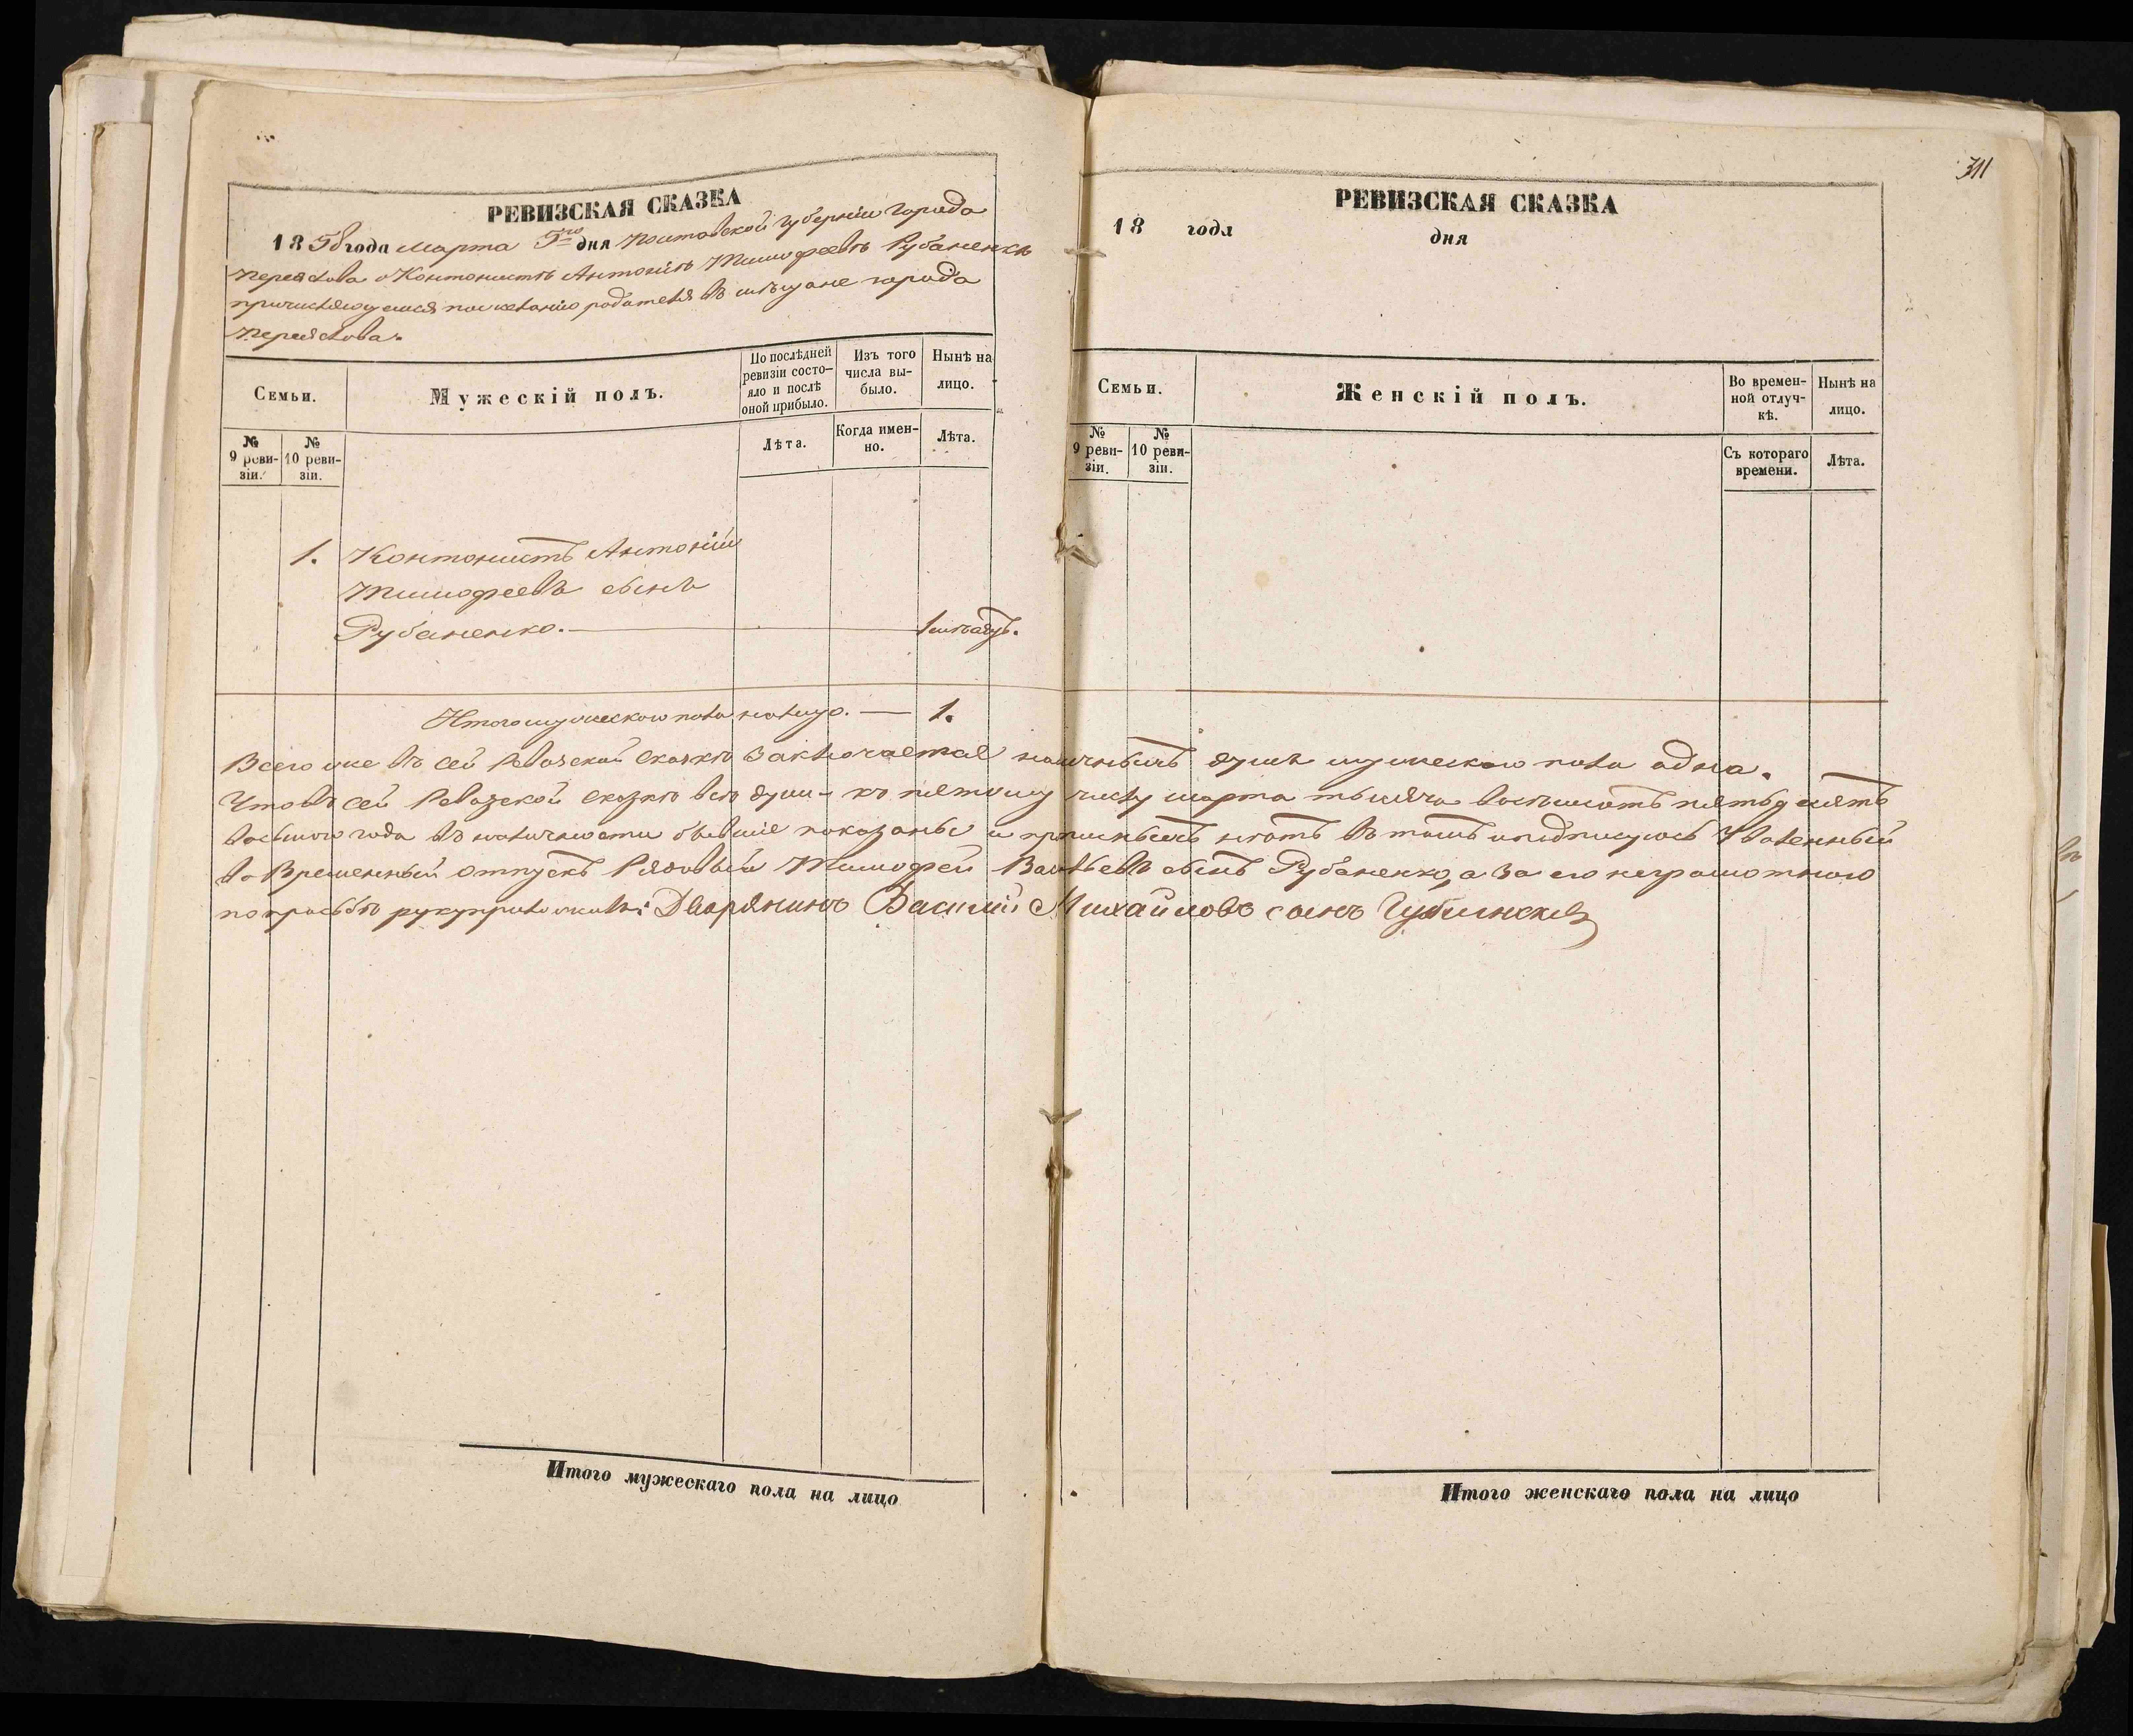 РЕВИЗСКАЯ СКАЗКА
1858 года Марта 5го дня Полтавской Губерніи Города
Переяслова о Контонистѣ Антоніѣ Тимофеевѣ Рубаненкѣ
причисляющемся по желанію родителя въ мѣщане города
Переяслова.
Семьи.
Мужескій полъ.
По послѣдней ревизіи состо-
яло и послѣ
оной прибыло.
Изъ того
числа вы-
было.
Нынѣ на
лицо.
№
9 реви-
зіи.
№
10 реви-
зіи.
Лѣта.
Когда имен-
но.
Лѣта.
1. Контонистъ Антоній
Тимофеевъ сынъ
Рубаненко. 1 мѣсяцъ.
Итого мужескаго пола налицо. — 1.
Всего же въ сей Ревизской сказкѣ заключается наличныхъ душъ мужескаго пола одна.
Что въ сей Ревизской сказкѣ всѣ души къ пятому числу марта тысяча восемсотъ пятьдесятъ
восьмого года въ наличности бывшіе показаны и прописныхъ нѣтъ въ томъ и подписуюсь Уволенный
во Временный отпускъ Рядовый Тимофей сынъ Рубаненко, а за его неграмотного
по прозьбѣ руку приложилъ: Дворянинъ Василий Михайловъ сынъ
Итого мужескаго пола на лицо
311
РЕВИЗСКАЯ СКАЗКА
18 года дня
Семьи.
Женскій полъ.
Во времен-
ной отлуч-
кѣ.
Нынѣ на
лицо.
№
9 реви-
зіи.
№
10 реви-
зіи.
Съ котораго
времени.
Лѣта.
Итого женскаго пола на лицо